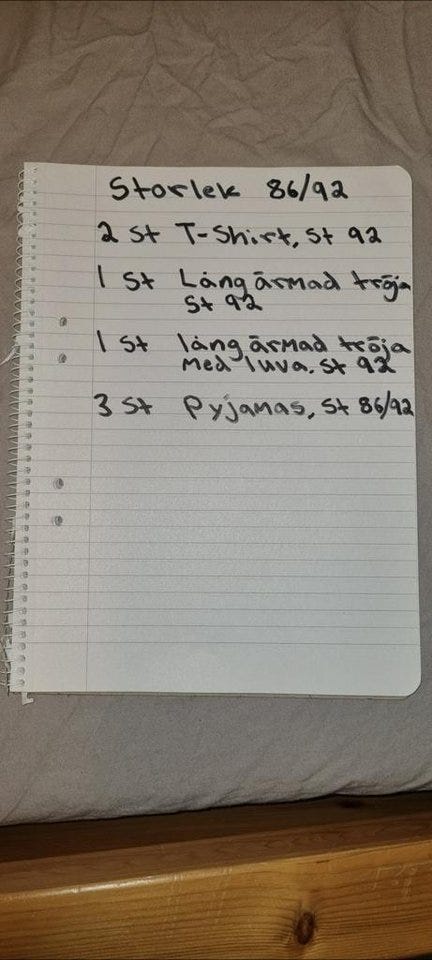 Storlek 86/92
2 st T-Shirt, st 92
1 st Långärmad tröja
st 92
1 st långärmad tröja
med luva, st 92
3 st Pyjamas, st 86/92